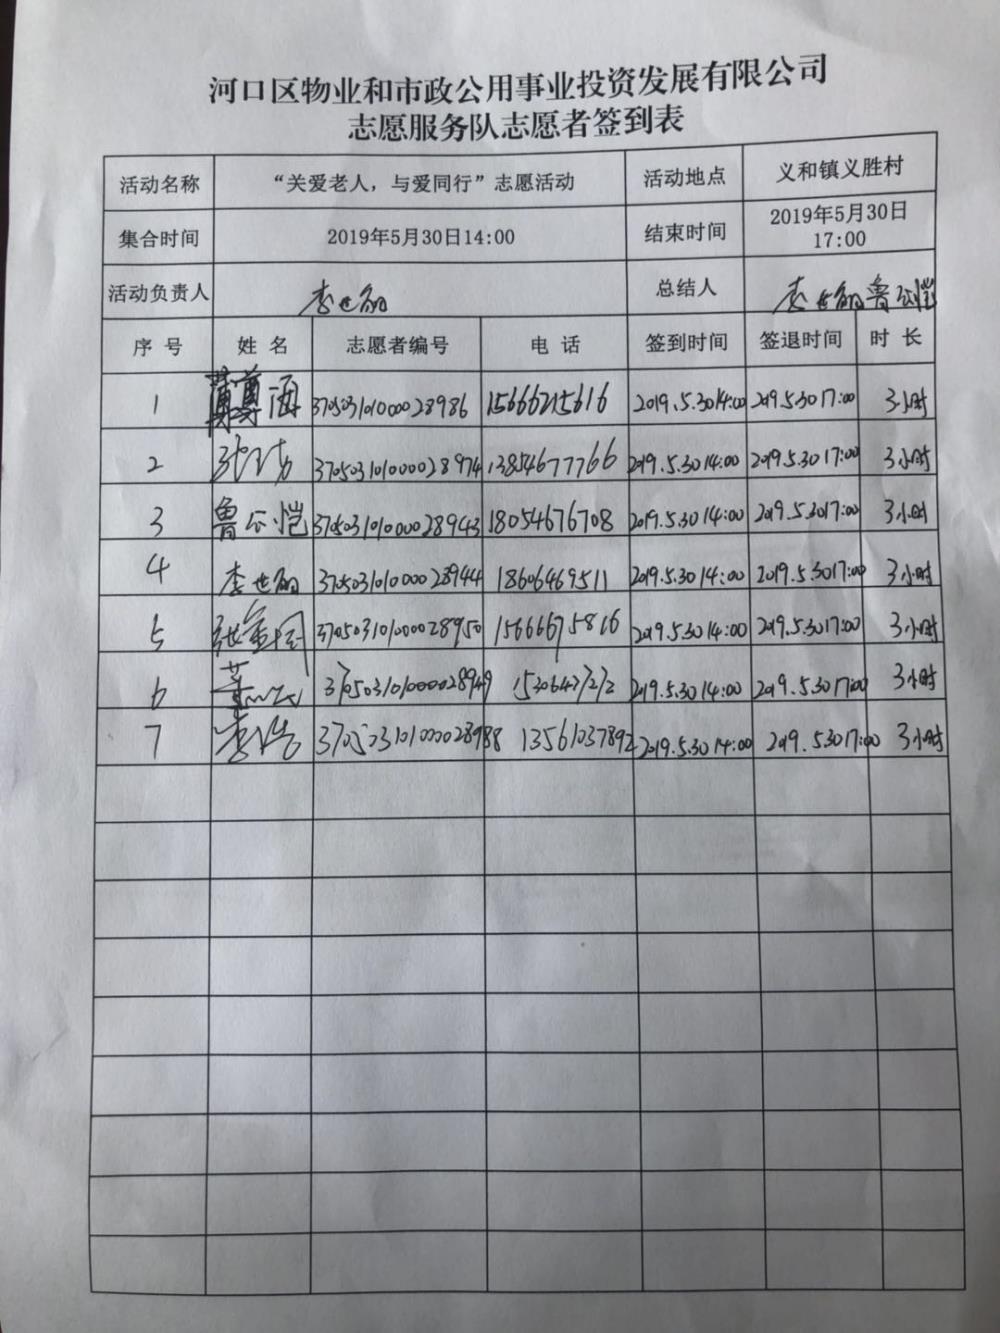 河口区物业和市政公用事业投资发展有限公司
志愿服务队志愿者签到表
活动名称 “关爱老人，与爱同行”志愿活动 活动地点 义和镇义胜村
集合时间 2019年5月30日14:00 结束时间 2019年5月30日
17:00
活动负责人 李世 总结人 李世 鲁
序号 姓名 志愿者编号 电话 签到时间 签退时间 时长
1 薄尊涵 3705031010000028986 15666215616 2019.5.30 14:00 2019.5.30 17:00 3小时
2 3705031010000028974 13854677766 2019.5.30 14:00 2019.5.30 17:00 3小时
3 鲁 3705031010000028943 18054676708 2019.5.30 14:00 2019.5.30 17:00 3小时
4 李世 3705031010000028944 18606469511 2019.5.30 14:00 2019.5.30 17:00 3小时
5 张 3705031010000028950 15666675816 2019.5.30 14:00 2019.5.30 17:00 3小时
6 3705031010000028949 15306427212 2019.5.30 14:00 2019.5.30 17:00 3小时
7 李浩 3705031010000028988 13561037892 2019.5.30 14:00 2019.5.30 17:00 3小时